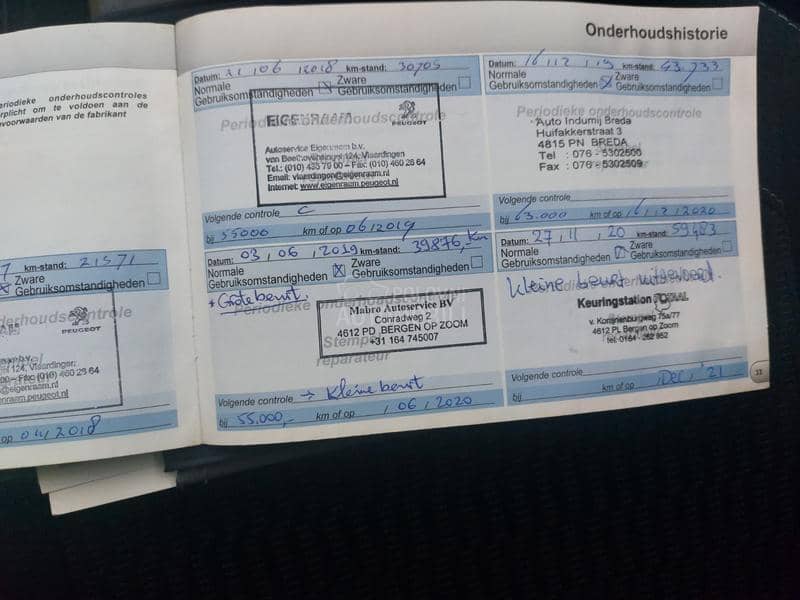 Onderhoudshistorie
eriodieke onderhoudscontroles
rplicht om te voldoen aan de
voorwaarden van de fabrikant
7 km-stand: 21571
Zware
Gebruiksomstandigheden
PEUGEOT
124, Vlaardingen
Fax: (010) 460 28 64
@eigenraam.nl
enraam.peugeot.nl
op 04/2018
Datum: 21, 06, 2018 km-stand: 30705
Normale
Gebruiksomstandigheden
Zware
Gebruiksomstandigheden
Periodieke onderhoudscontrole
PEUGEOT
Autoservice Eigenraam b.v.
van Beethovensingel 124, Vlaardingen
Tel.: (010) 435 70 00 – Fax: (010) 460 28 64
Email: vlaardingen@eigenraam.nl
Internet: www.eigenraam.peugeot.nl
Volgende controle C
bij 55000 km of op 06/2019
Datum: 03, 06, 2019 km-stand: 39876, Km
Normale
Gebruiksomstandigheden
Zware
Gebruiksomstandigheden
* Grote beurt.
Periodieke onderhoudscontrole
Mabro Autoservice BV
Conradweg 2
4612 PD BERGEN OP ZOOM
+31 164 745007
Stempel
reparateur
Volgende controle → Kleine beurt
bij 55.000,- km of op / 06 / 2020
Datum: 16, 12, 19 km-stand: 43.733
Normale
Gebruiksomstandigheden
Zware
Gebruiksomstandigheden
Periodieke onderhoudscontrole
Auto Indumij Breda
Huifakkerstraat 3
4815 PN BREDA
Tel : 076 - 5302500
Fax : 076 - 5302509
Volgende controle
bij 63.000 km of op 16/12/2020
Datum: 27, 11, 20 km-stand: 59483
Normale
Gebruiksomstandigheden
Zware
Gebruiksomstandigheden
Kleine beurt uitgevoerd.
Keuringstation TOTAAL
4612 PL Bergen op Zoom
Volgende controle
bij km of op Dec, '21
33